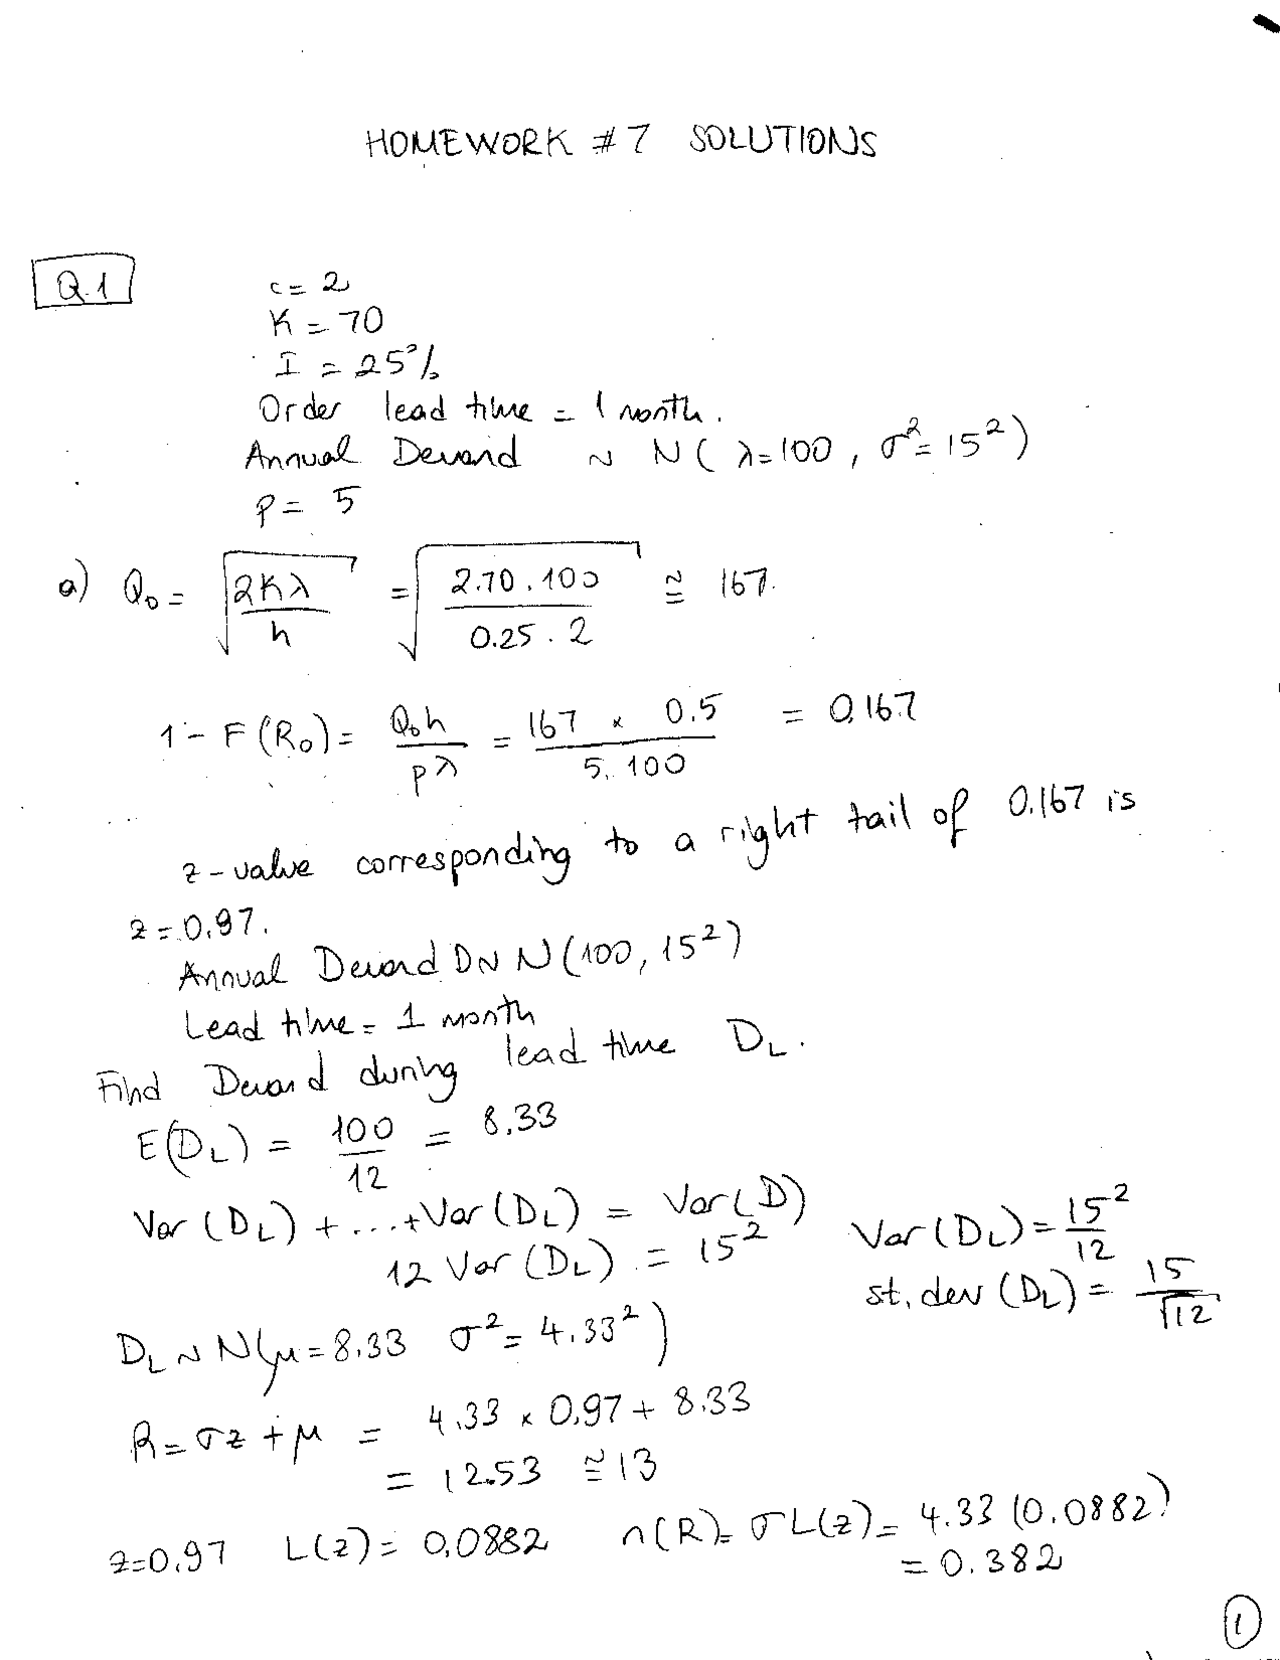 HOMEWORK #7 SOLUTIONS
Q.1
c = 2
K = 70
I = 25%
Order lead time = 1 month.
Annual Demand ~ N( λ=100, σ²=15²)
p = 5
a) Q₀ = √(2Kλ/h) = √(2.70.100/0.25.2) ≅ 167.
1 - F(R₀) = Q₀h/pλ = 167 x 0.5/5.100 = 0.167
z-value corresponding to a right tail of 0.167 is
z = 0.97.
Annual Demand D~N(100, 15²)
Lead time = 1 month
Find Demand during lead time D_L.
E(D_L) = 100/12 = 8.33
Var(D_L) + ... + Var(D_L) = Var(D)
12 Var(D_L) = 15²
Var(D_L) = 15²/12
st. dev (D_L) = 15/√12
D_L ~ N(μ=8.33 σ²=4.33²)
R = σz + μ = 4.33 x 0.97 + 8.33
= 12.53 ≅ 13
z=0.97 L(z) = 0.0882 n(R) = σL(z) = 4.33 (0.0882)
= 0.382
1